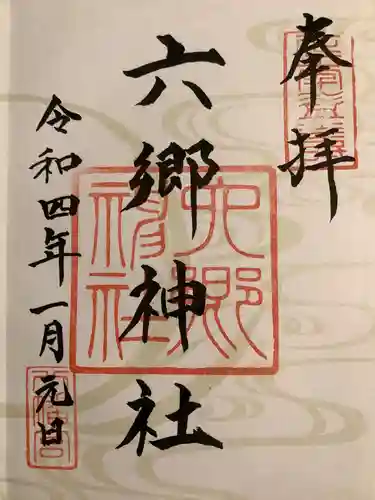 奉拝
六郷神社
六郷神社
令和四年一月元日